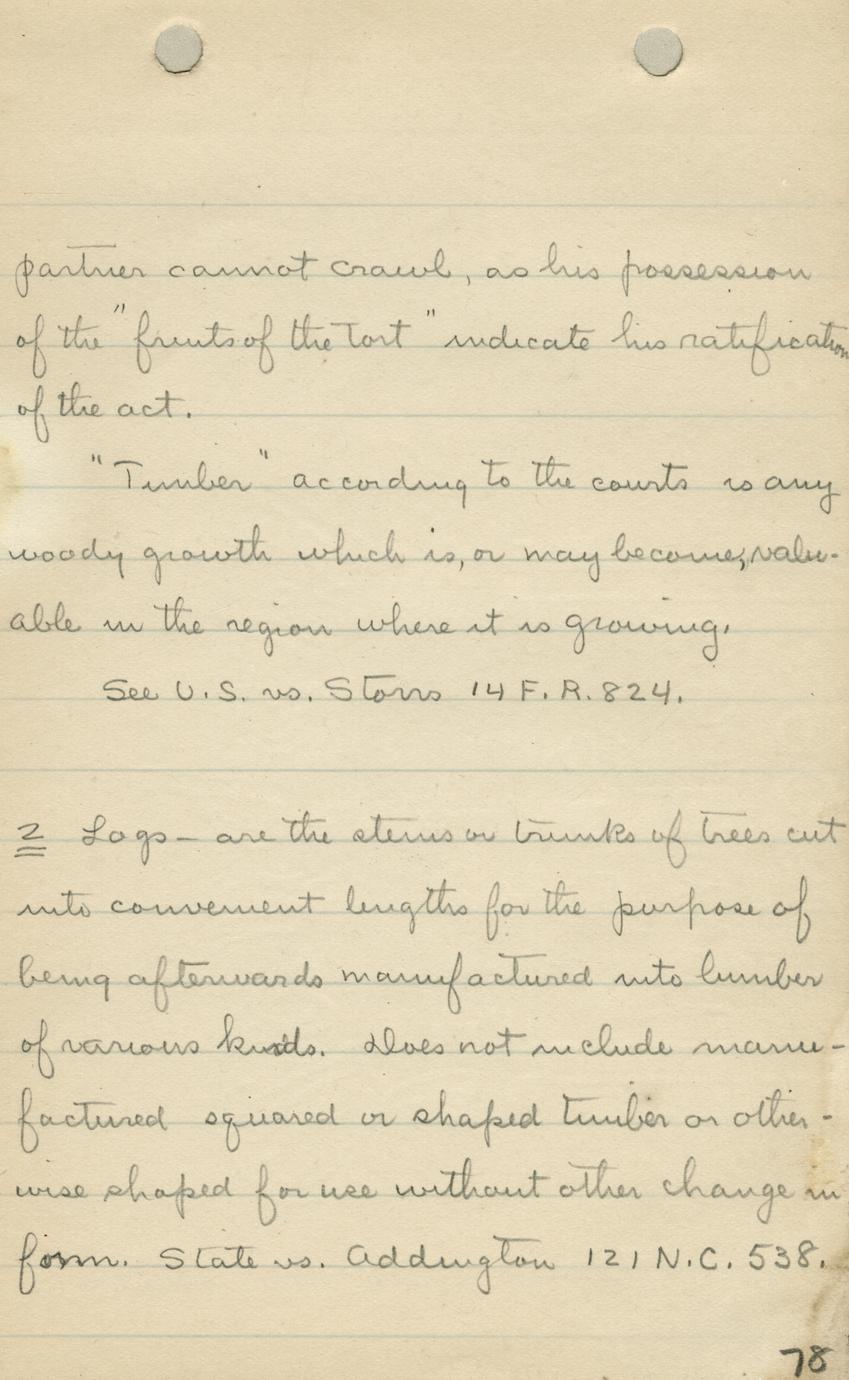 partner cannot crawl, as his possession
of the "fruits of the Tort" indicate his ratification
of the act.
"Timber" according to the courts is any
woody growth which is, or may become, valu-
able in the region where it is growing.
See U.S. vs. Storrs 14 F.R. 824.
2 Logs - are the stems or trunks of trees cut
into convenient lengths for the purpose of
being afterwards manufactured into lumber
of various kinds. Does not include manu-
factured squared or shaped timber or other-
wise shaped for use without other change in
form. State vs. Addington 121 N.C. 538.
78